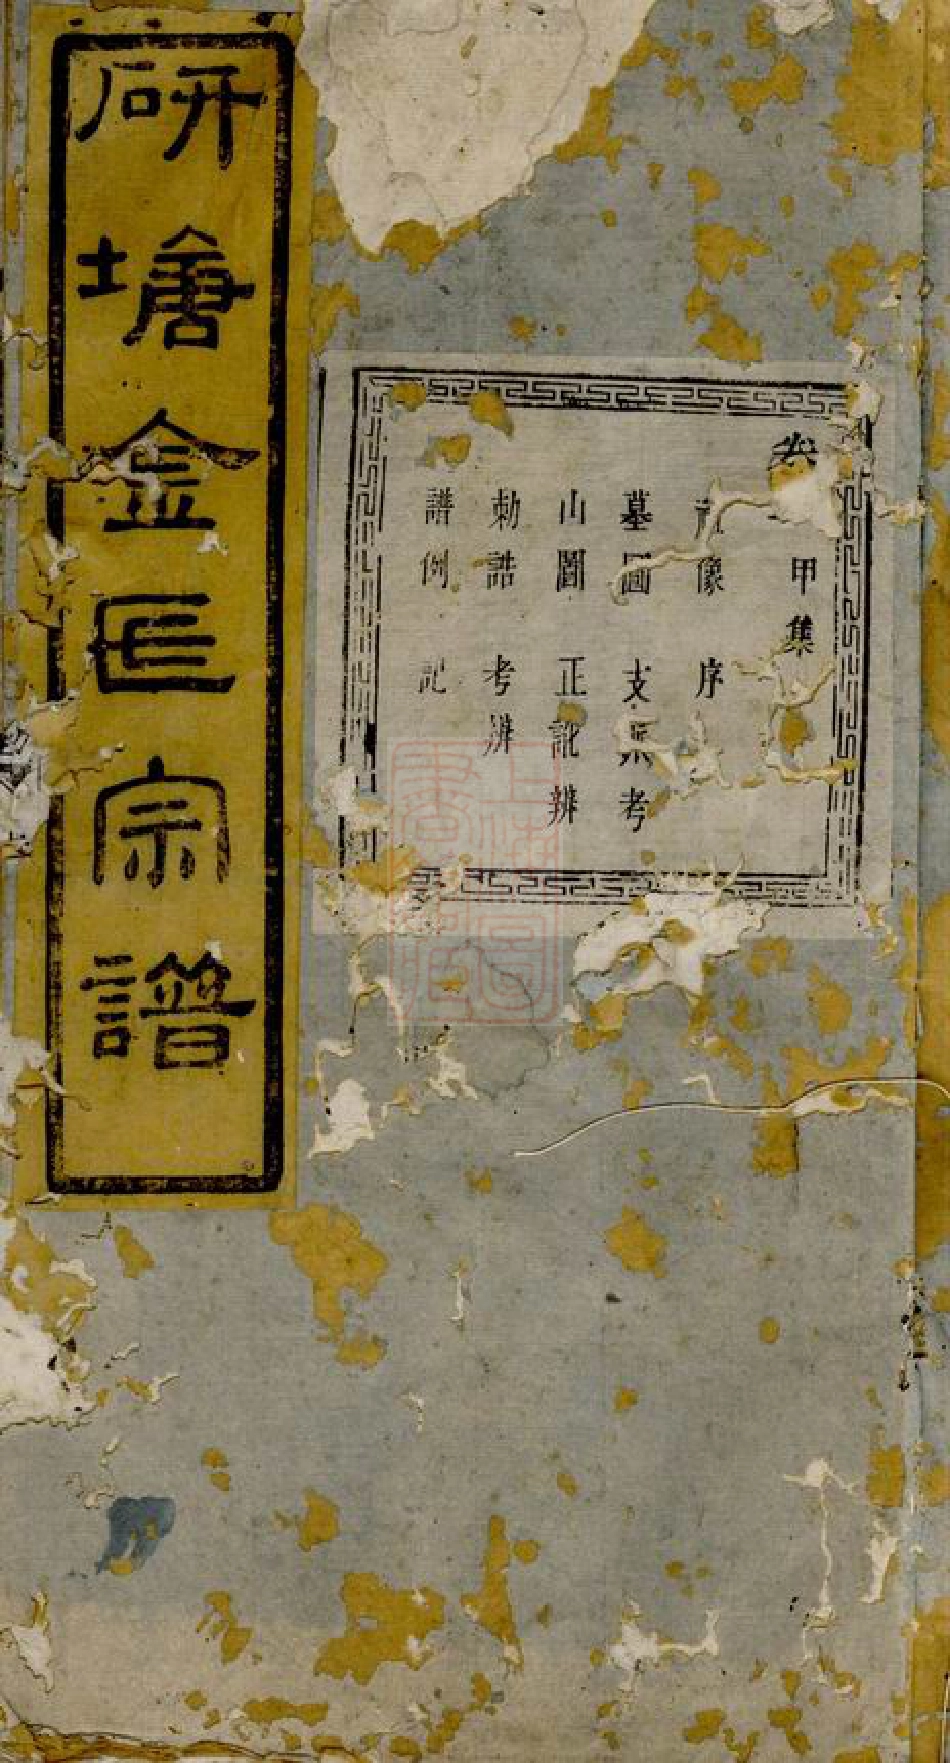 卷 甲集
像 序
墓圖 支派考
山圖 正訛辨
勅誥 考辨
譜例 記
研塘金氏宗譜